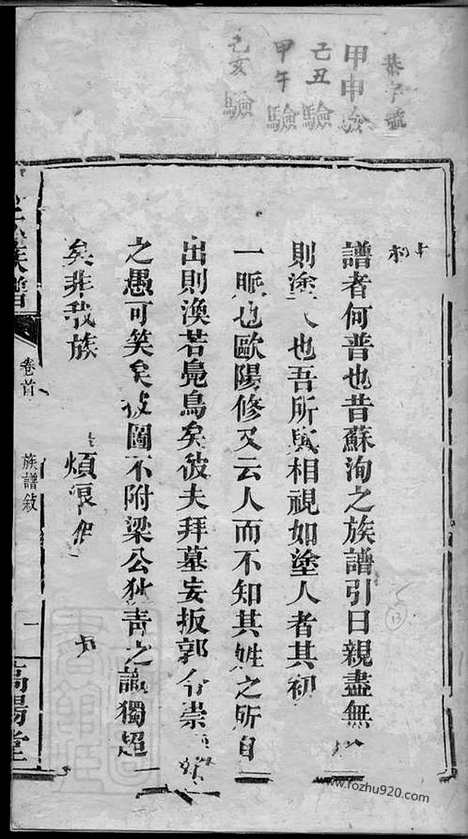 恭字號
甲申
己丑驗
甲午驗
己亥驗
譜者何普也昔蘇洵之族譜引曰親盡無
則塗人也吾所與相視如塗人者其初
一脈也歐陽修又云人而不知其姓之所自
出則渙若鳧鳥矣彼夫拜墓妄扳郭令崇
之愚可笑矣披圖不附梁公狄青之識獨超
矣非我族
煩
族譜
卷首
族譜敘
一
高陽堂
www.fozhu920.com